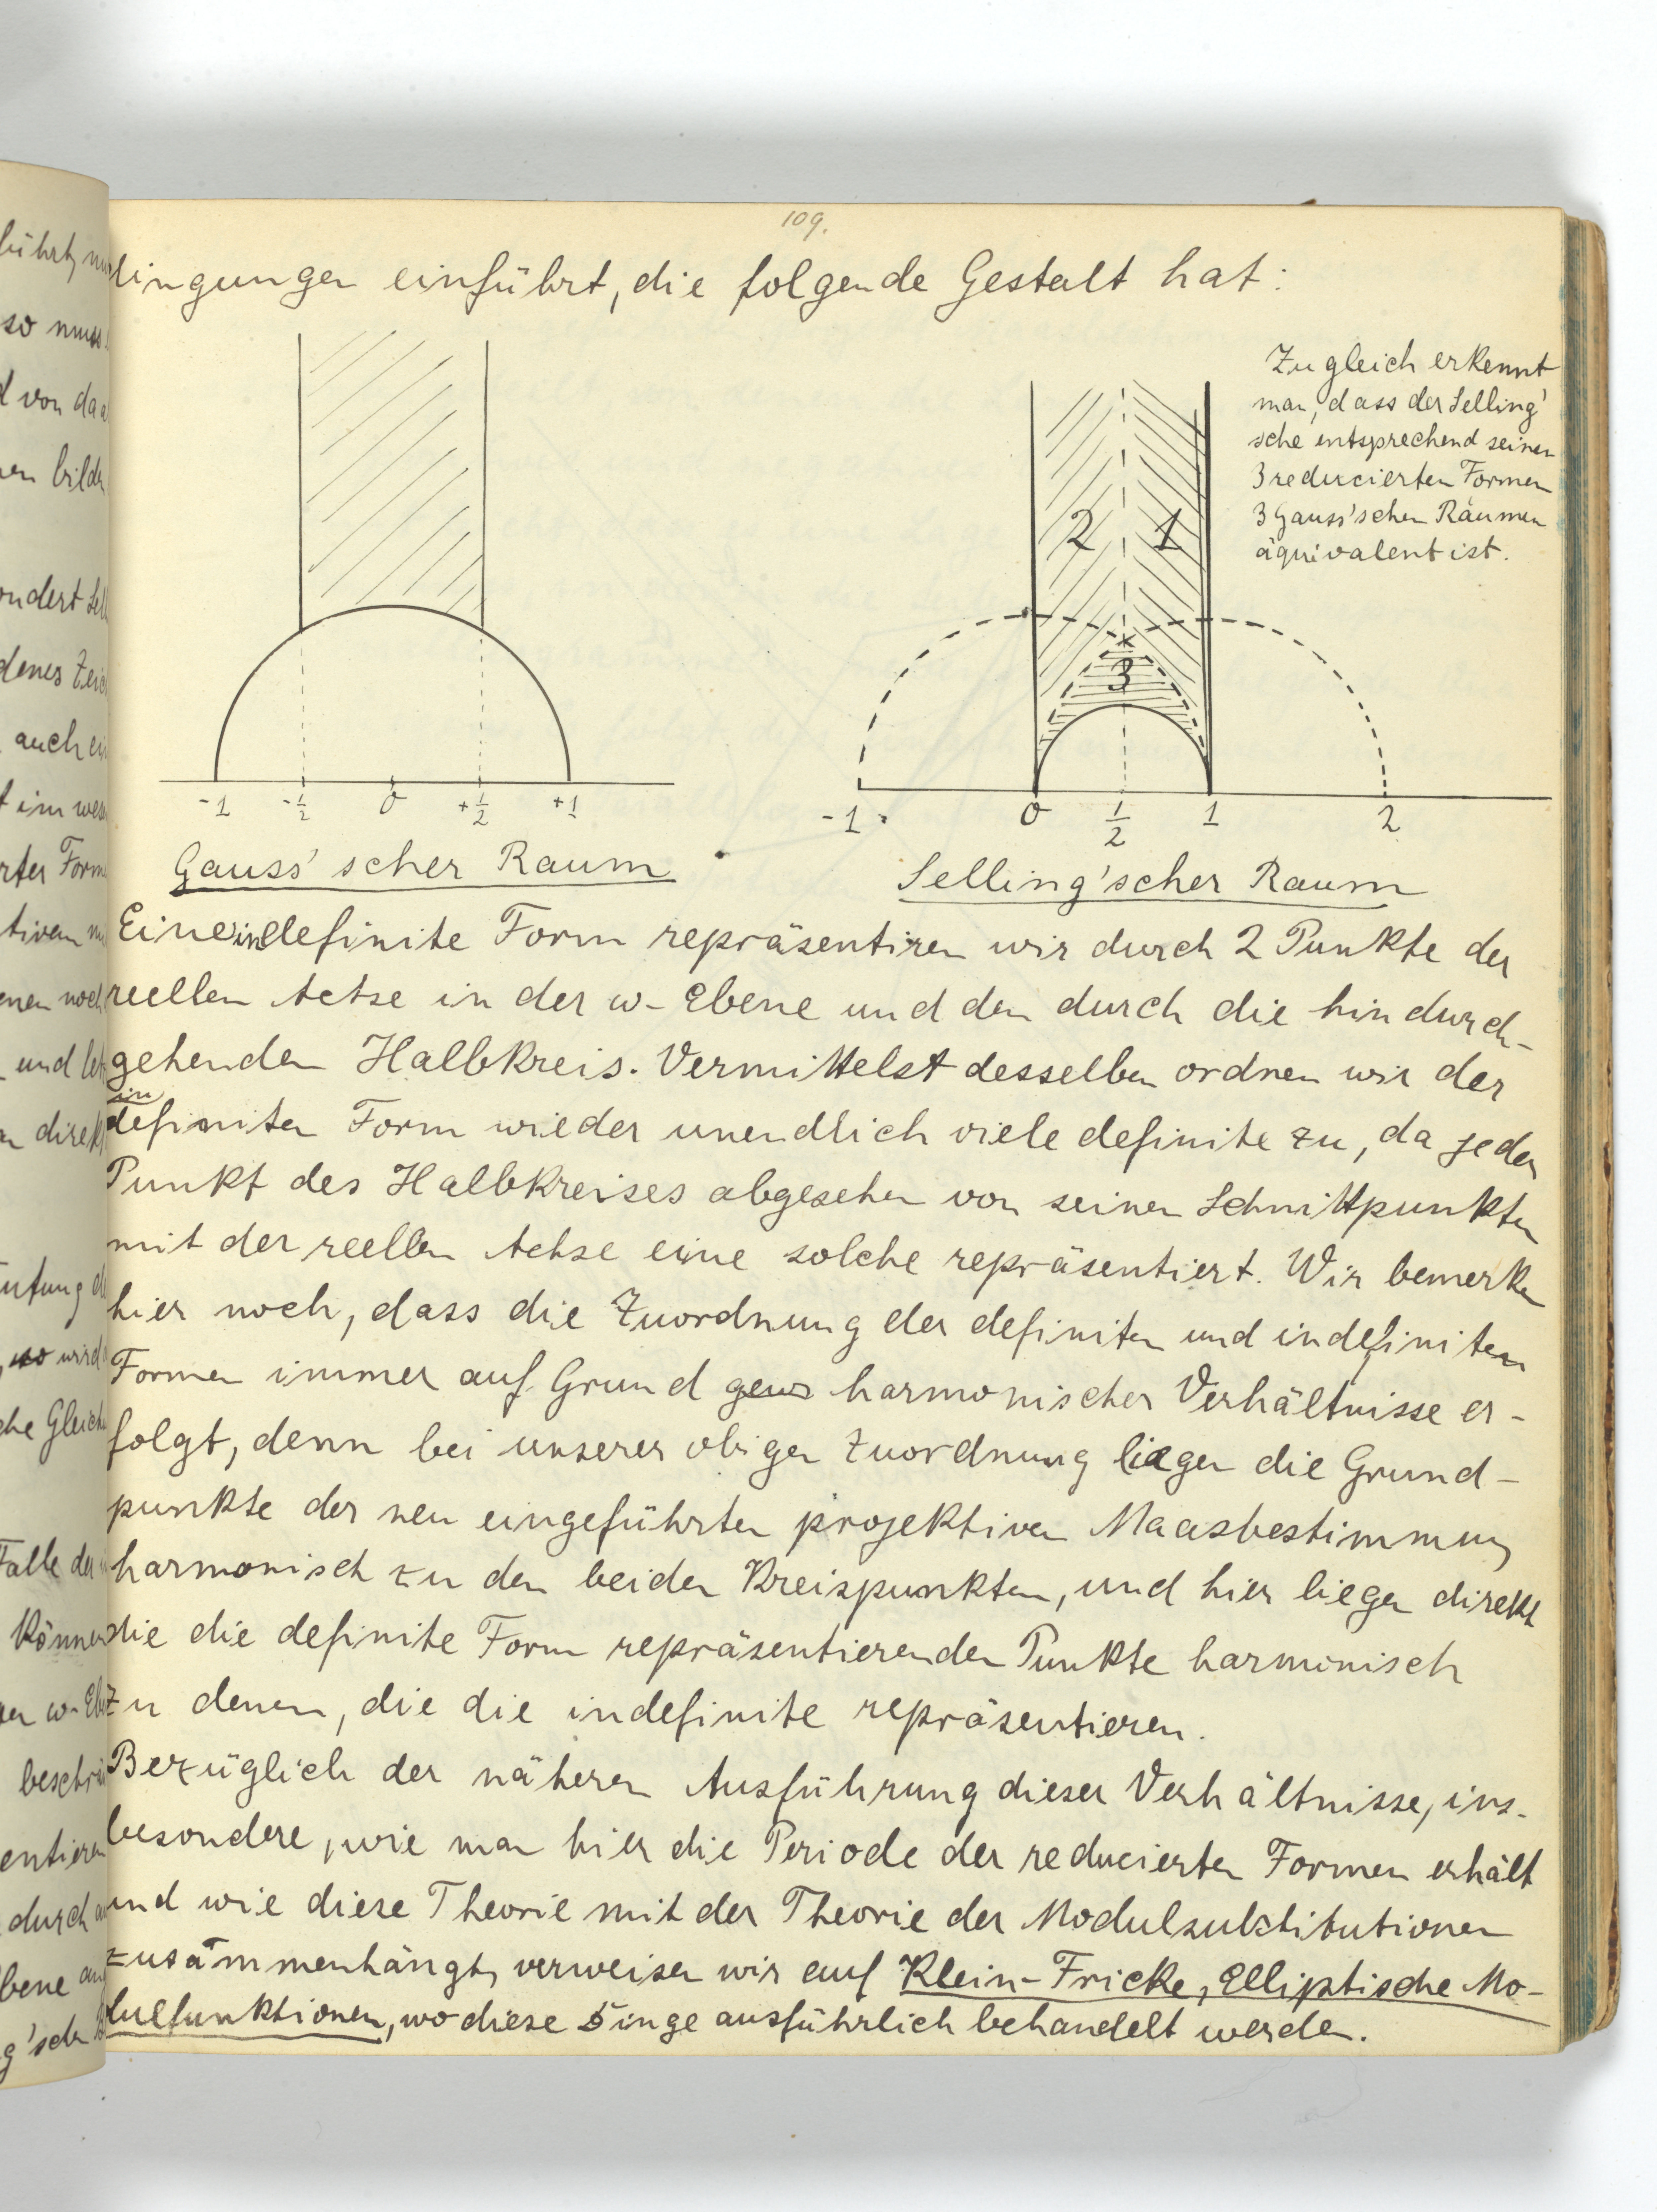 109.
dingungen einführt, die folgende Gestalt hat:
Zugleich erkennt
man, dass der Selling'
sche entsprechend seinen
3 reducierten Formen
3 Gauss'schen Räumen
äquivalent ist.
2 1
3
-1 -1/2 0 +1/2 +1
-1 0 1/2 1 2
Gauss'scher Raum
Selling'scher Raum
Eine indefinite Form repräsentiren wir durch 2 Punkte der
reellen Achse in der w-Ebene und den durch die hindurch-
gehenden Halbkreis. Vermittelst desselben ordnen wir der
indefiniten Form wieder unendlich viele definite zu, da jeder
Punkt des Halbkreises abgesehen von seinen Schnittpunkten
mit der reellen Achse eine solche repräsentiert. Wir bemerken
hier noch, dass die Zuordnung der definiten und indefiniten
Formen immer auf Grund harmonischer Verhältnisse er-
folgt, denn bei unserer obigen Zuordnung liegen die Grund-
punkte der neu eingeführten projektiven Maasbestimmung
harmonisch zu den beiden Kreispunkten, und hier liegen direkt
die die definite Form repräsentierenden Punkte harmonisch
zu denen, die die indefinite repräsentieren.
Bezüglich der näheren Ausführung dieser Verhältnisse, ins-
besondere, wie man hier die Periode der reducierten Formen erhält
und wie diese Theorie mit der Theorie der Modulsubstitutionen
zusammenhängt, verweisen wir auf Klein-Fricke, Elliptische Mo-
dulfunktionen, wo diese Dinge ausführlich behandelt werden.
führt,
so muss
d von da
bilde
ondert
denes
auch
t im
rter Form
tiven
enen noch
und
direkt
wird
che
Falle der
können
w-Eb
durch
bene